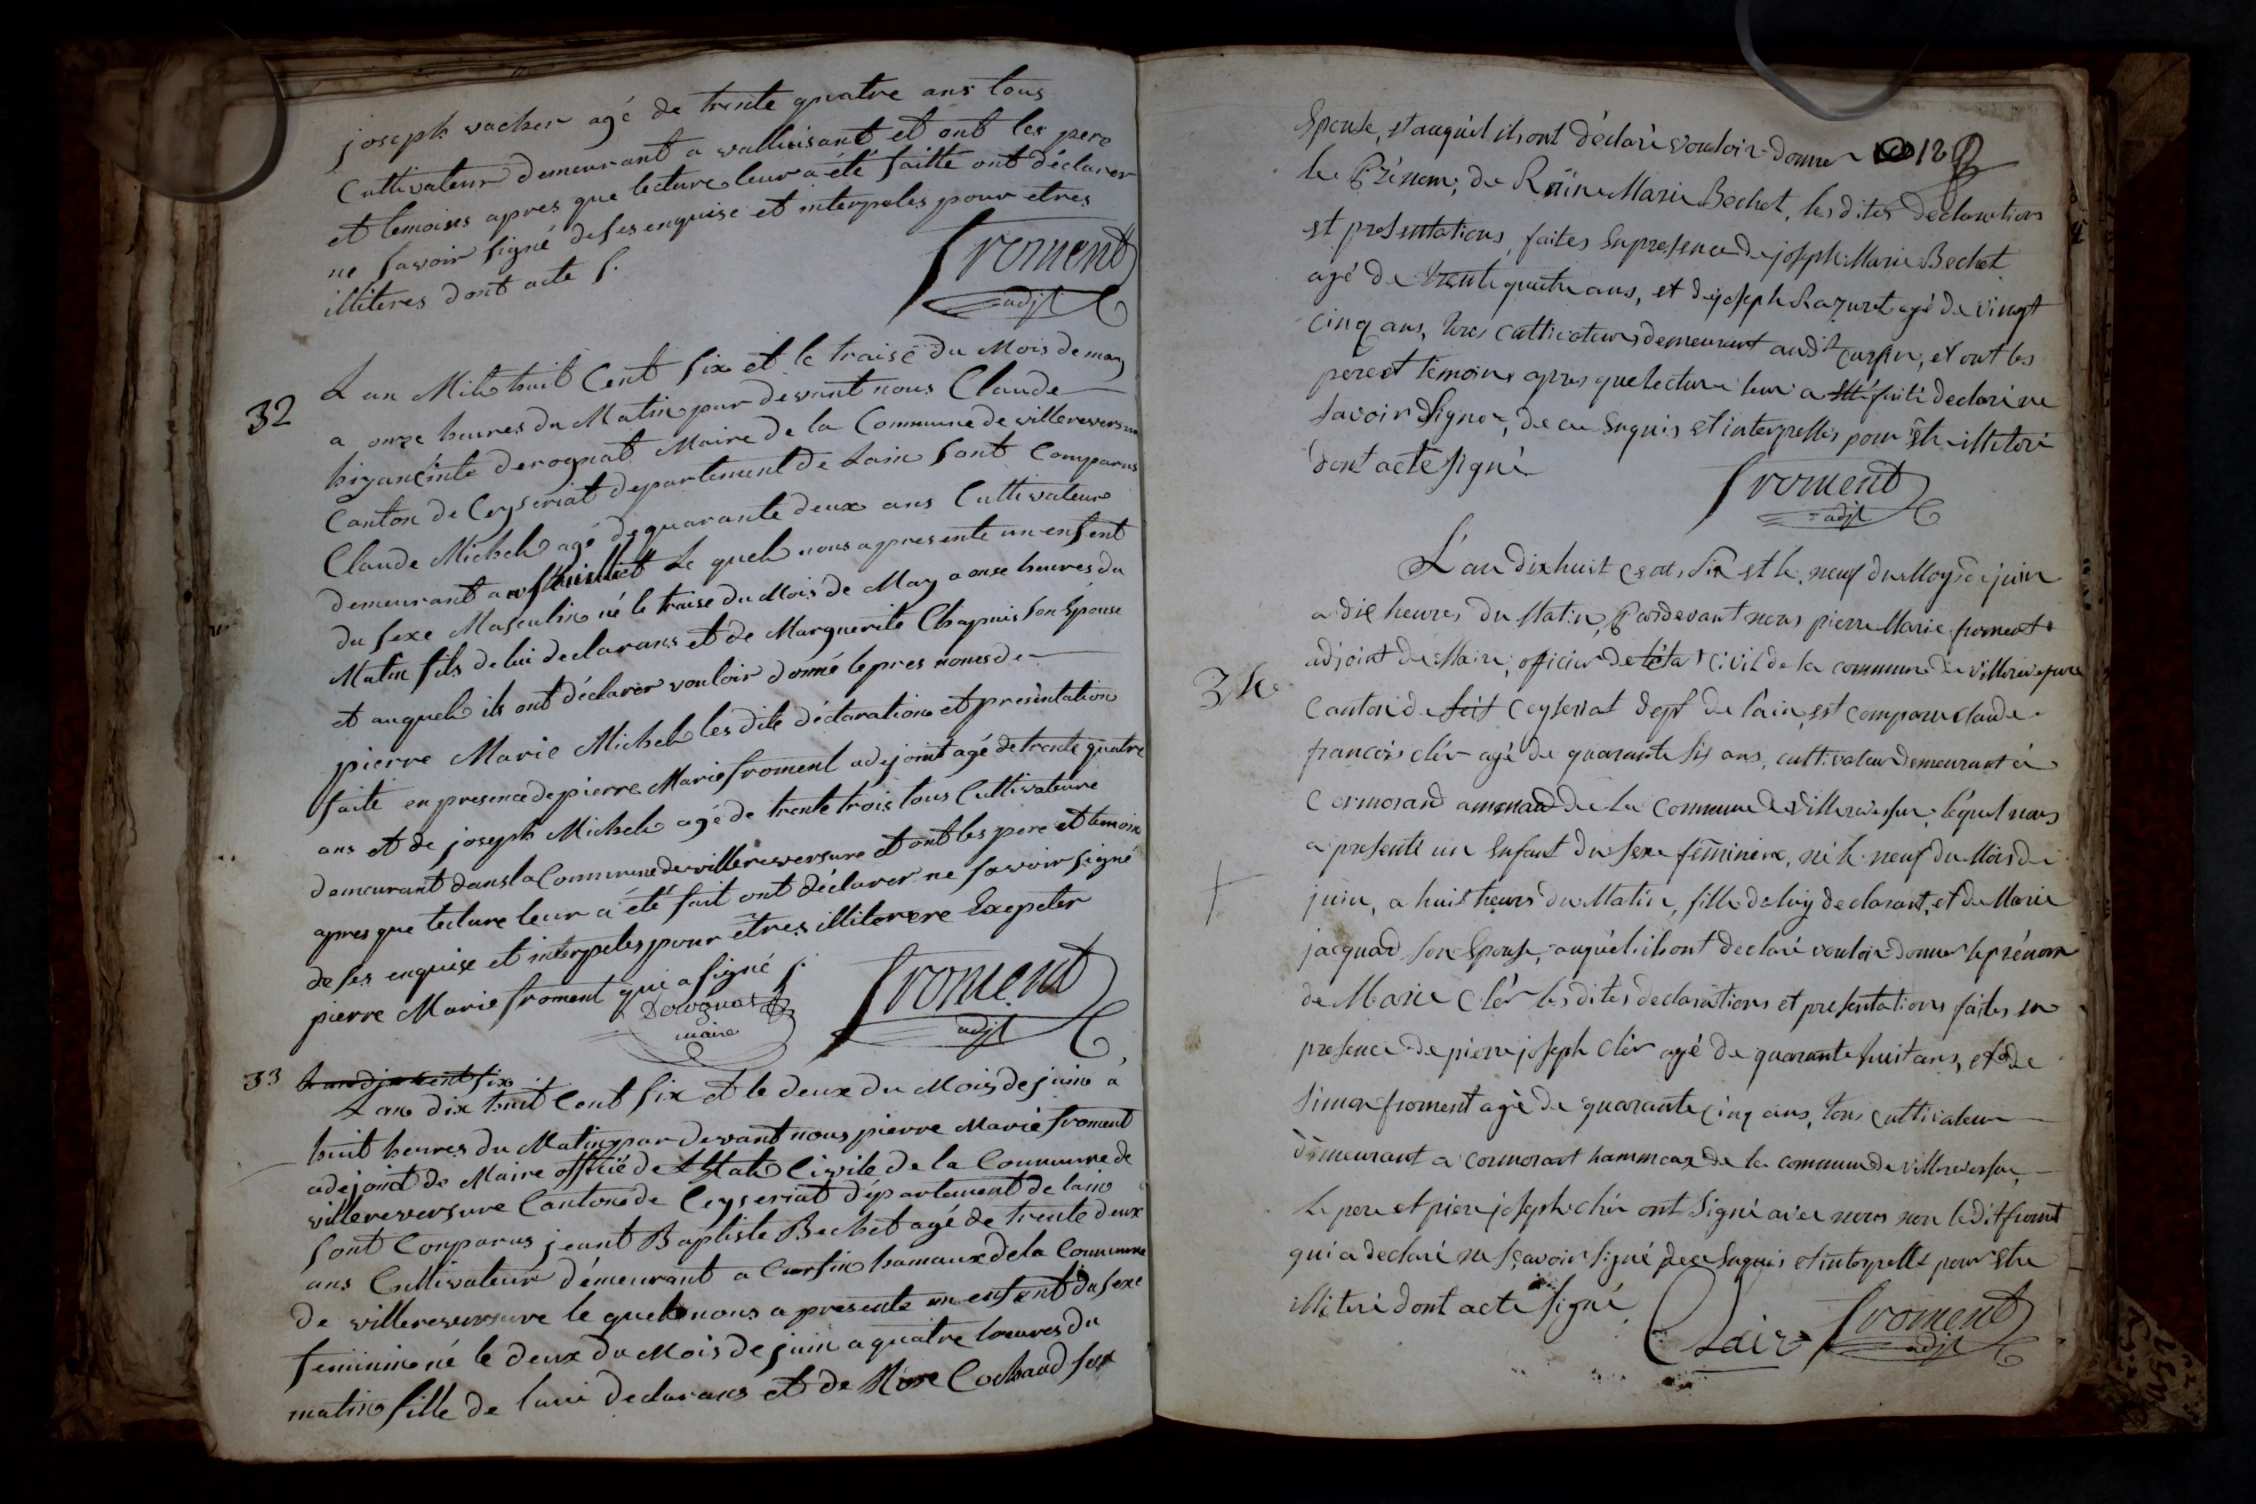 joseph vacher agé de trente quatre ans tous
Cultivateur demeurant a valluisant et ont les pere
et temoins apres que lecture leur a été faitte ont déclarer
ne savoir signé de ses enquise et interpeles pour etres
illiteres dont acte s.
froment
adjt
32
L an Mil huit Cent Six et le traise du Mois de may
a onze heures du Matin par devant nous Claude
hizancinte derognat Maire de la Commune de villereversure
Canton de Ceyseriat departement de Lain Sont Comparus
Claude Michel agé de quarante deux ans Cultivateur
demeurant a Le quel nous a presente un enfent
du sexe Masculin né le traise du Mois de May a onse heures du
Matin fils de lui declarans et de Marguerite Chapuis son Epouse
et auquel ils ont déclarer vouloir donné le pres noms de
pierre Marie Michel les dite déclaration et presentation
faite en presence de pierre Marie froment adejoint agé de trente quatre
ans et de joseph Michel agé de trente trois tous Cultivateure
demeurant dans la Commune de villereversure et ont les pere et temoin
apres que lecture leur a été fait ont déclarer ne savoir signé
de ses enquise et interpeles pour êtres illiterere Exepeter
pierre Marie froment qui a signé s.
Derognat
maire
froment
adjt
33
L an dix huit Cent six
L an dix huit Cent Six et le deux du Mois de juin à
huit heures du Matin par devant nous pierre Marie froment
adejoint de Maire offitié de L Etat Civile de la Commune de
villereversure Canton de Ceyseriat département de lain
Sont Conparus jeant Baptiste Bechet agé de trente deux
ans Cultivateur démeurant a Cursin hamaux de la Commune
de villereversure le quel nous a presente un enfent du sexe
feminin né le deux du Mois de juin a quatre heures du
matin fille de luvi declarans et de Cochaud son
Epouse, et auquel ils ont déclaré vouloir donner 12
le Prénom, de Reine Marie Bechet, les dites declarations
et presentations, faites En presence de joseph Marie Bechet
agé de trente quatre ans, et de joseph Razuret agé de vingt
cinq ans, tous cultivateurs demeurant audit Cursin, et ont les
pere et temoins apres que lecture leur a été faite declaré ne
savoir Signer, de ce Enquis et interpellés pour être illiteré
dont acte signé
froment
adjt
34
L'an dix huit Cent Six et le neuf du Moys de juin
a dix heures du Matin, Pardevant nous pierre Marie froment
adjoint du Maire, officier de l'état civil de la commune de villereversure
Canton de Ceyseriat dept de l'ain, est comparu claude
francois clér agé de quarante six ans, cultivateur demeurant à
Cormorand de la commune de Villereversure, lequel nous
a presenté un Enfant du sexe féminine, né le neuf du Mois de
juin, a huit heures du Matin, fille de luy declarant, et de Marie
jacquand son Epouse, auquel ils ont declaré vouloir donner le prénom
de Marie Clér les dites declarations et presentations faites en
presence de pierre joseph Clér agé de quarante huit ans, et de
Simon froment agé de quarante cinq ans, tous cultivateur
demeurant a Cormorant hammeax de la commune de villereversure,
le pere et pierre joseph clér ont Signé avec nous non ledit froment
qui a declaré ne sçavoir signé de ce Enquis et interpellé pour etre
illiteré dont acte signé
Clair froment
adjt